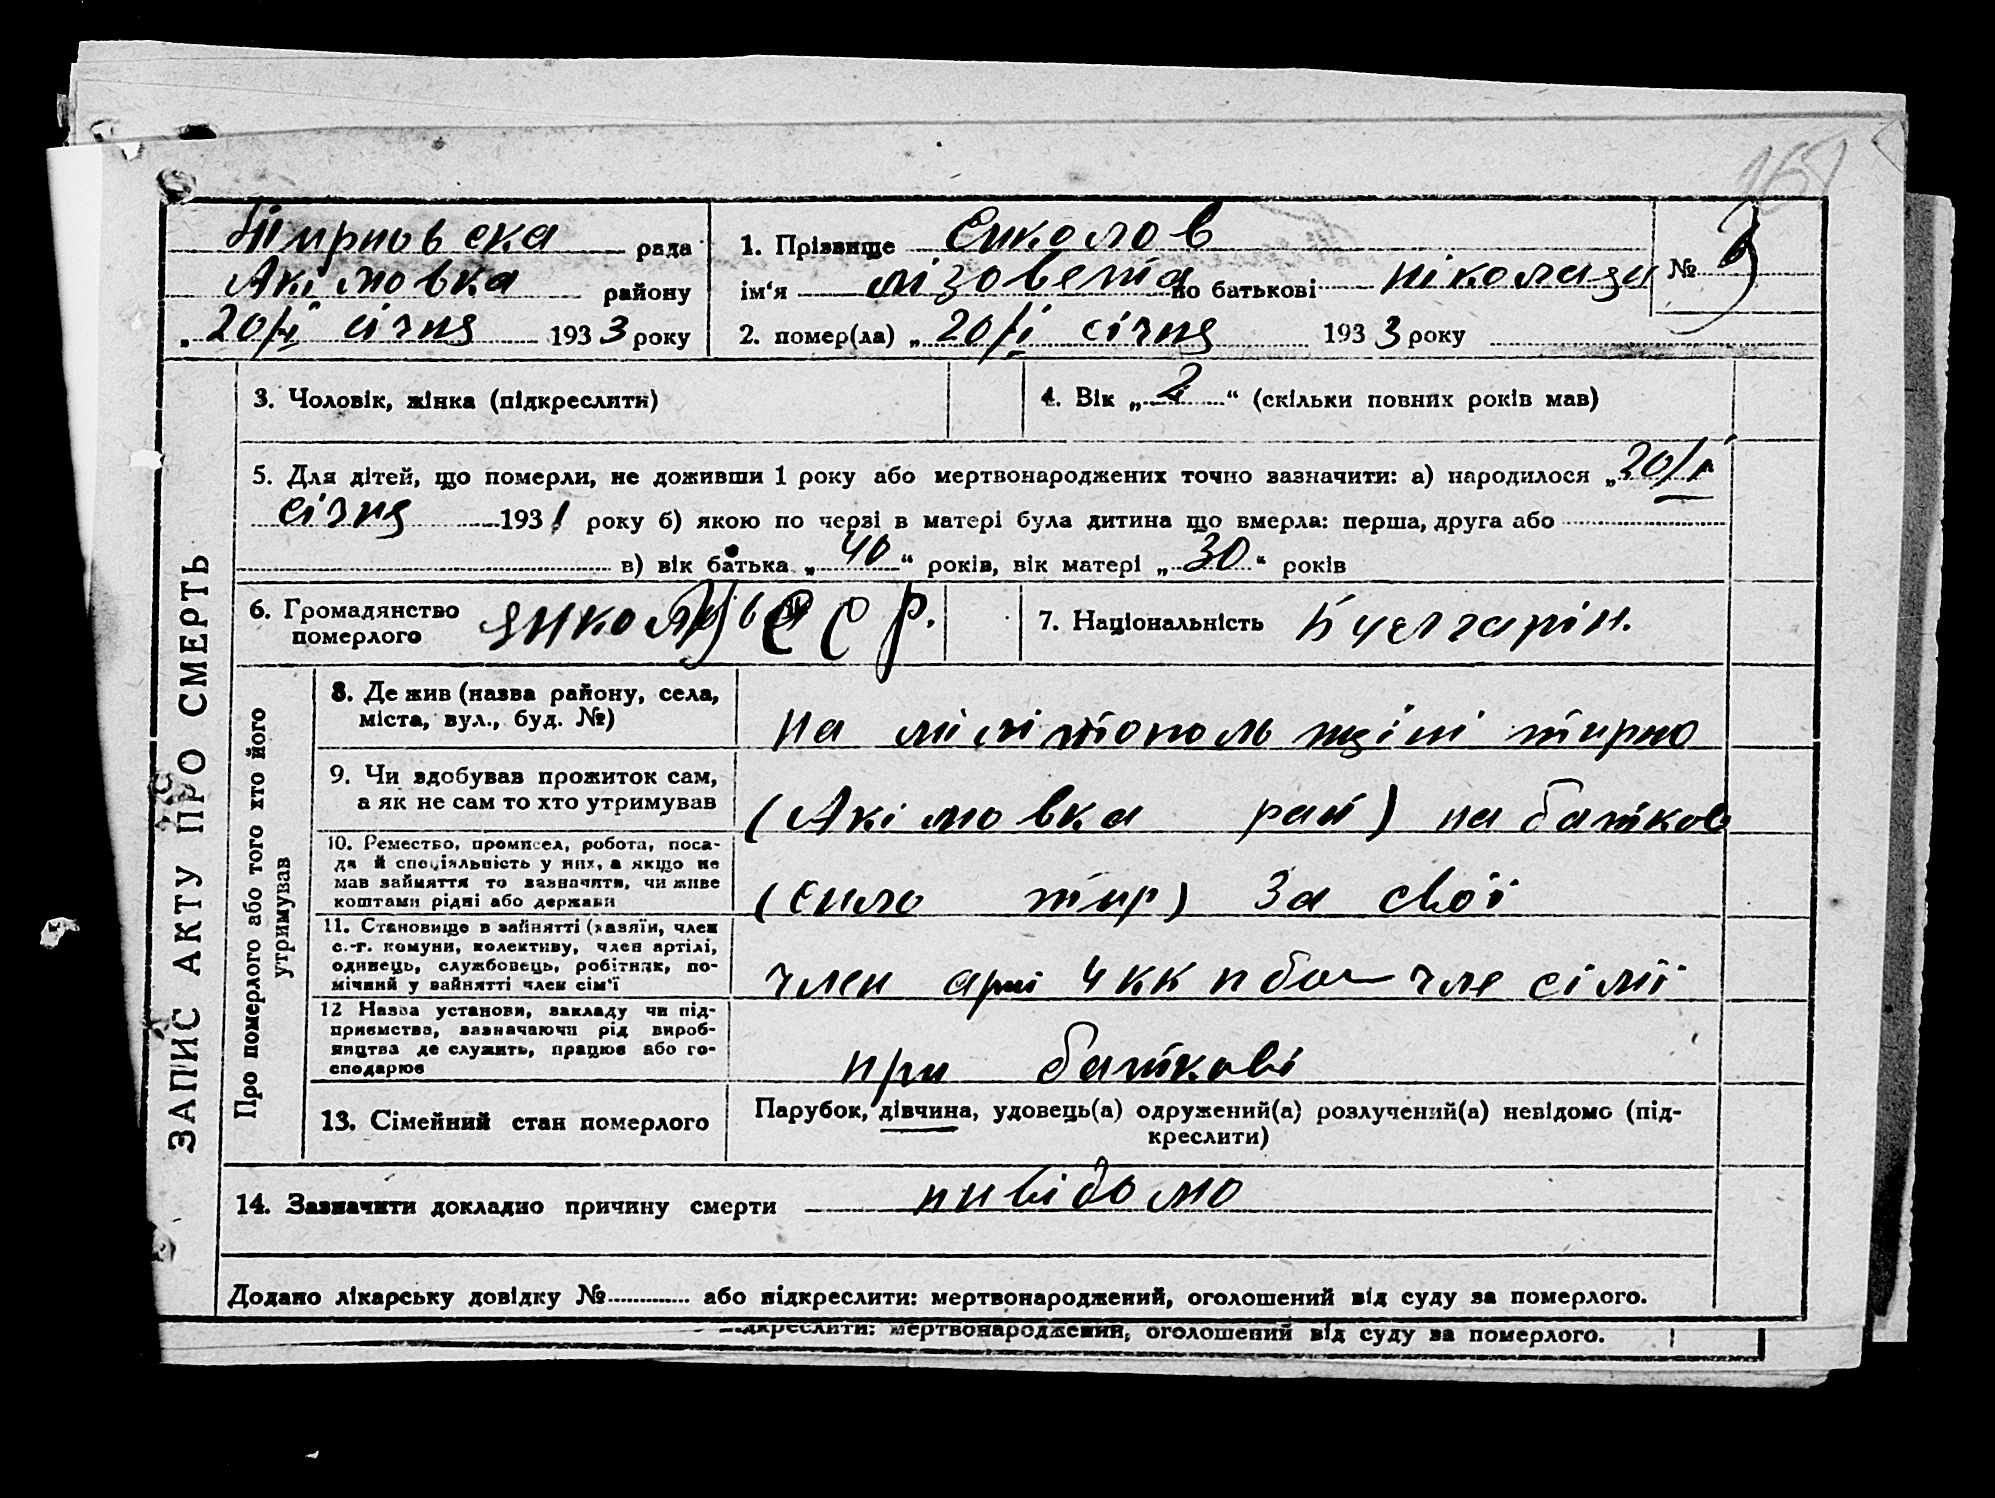 168
Тірновска рада
Акімовка району
„20/І січня 1933 року
1. Прізвище Єнколов
ім‘я лізовета по батькові ніколаэи
№
2. помер(ла) „20/І січня 1933 року
3. Чоловік, жінка (підкреслити)
4. Вік „2“ (скільки повних років мав)
5. Для дітей, що померли, не доживши 1 року або мертвонароджених точно зазначити: а) народилося „20/І
січня 1931 року б) якою по черзі в матері була дитина що вмерла: перша, друга або
в) вік батька „40“ років, вік матері „30“ років
6. Громадянство
померлого
УССР.
7. Національність Булгарін.
ЗАПИС АКТУ ПРО СМЕРТЬ
Про померлого або того хто його
утримував
8. Де жив (назва району, села,
міста, вул., буд. №)
на мілітополь щіні тирно
9. Чи здобував прожиток сам,
а як не сам то хто утримував
(Акімовка рай) на батков
10. Ремество, промисел, робота, поса-
да й спеціяльність у них, а якщо не
мав зайняття то зазначити, чи живе
коштами рідні або держави
(сило тир) За свої
11. Становище в зайнятті (хазяїн, член
с.-г. комуни, колективу, член артілі,
одинець, службовець, робітник, по-
мічний у зайнятті член сім'ї
член арті чле сімії
12 Назва установи, закладу чи під-
приємства, зазначаючи рід вироб-
ництва де служить, працює або го-
сподарює
при баткові
13. Сімейний стан померлого
Парубок, дівчина, удовець(а) одружений(а) розлучений(а) невідомо (під-
креслити)
14. Зазначити докладно причину смерти нивідомо
Додано лікарську довідку № або підкреслити: мертвонароджений, оголошений від суду за померлого.
підкреслити: мертвонароджений, оголошений від суду за померлого.